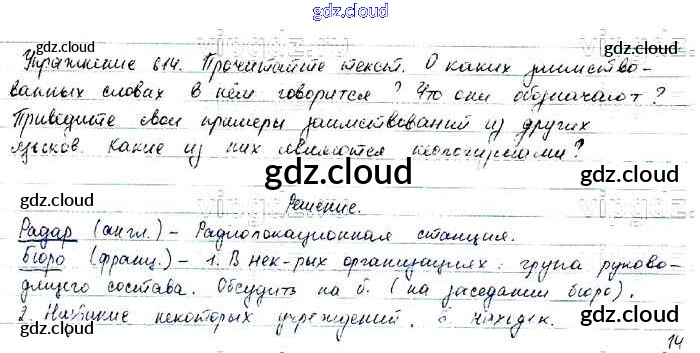 gdz.cloud
gdz.cloud
gdz.cloud
Упражнение 614. Прочитайте текст. О каких заимство-
ванных словах в нём говорится? Что они обозначают?
Приведите свои примеры заимствований из других
языков. Какие из них являются неологизмами?
gdz.cloud
gdz.cloud
gdz.cloud
Решение.
Радар (англ.) – Радиолокационная станция.
Бюро (франц.) – 1. В нек-рых организациях: група руково-
дящего состава. Обсудить на б. (на заседании бюро).
2. Название некоторых учреждений. Б. находок.
gdz.cloud
gdz.cloud
gdz.cloud
14